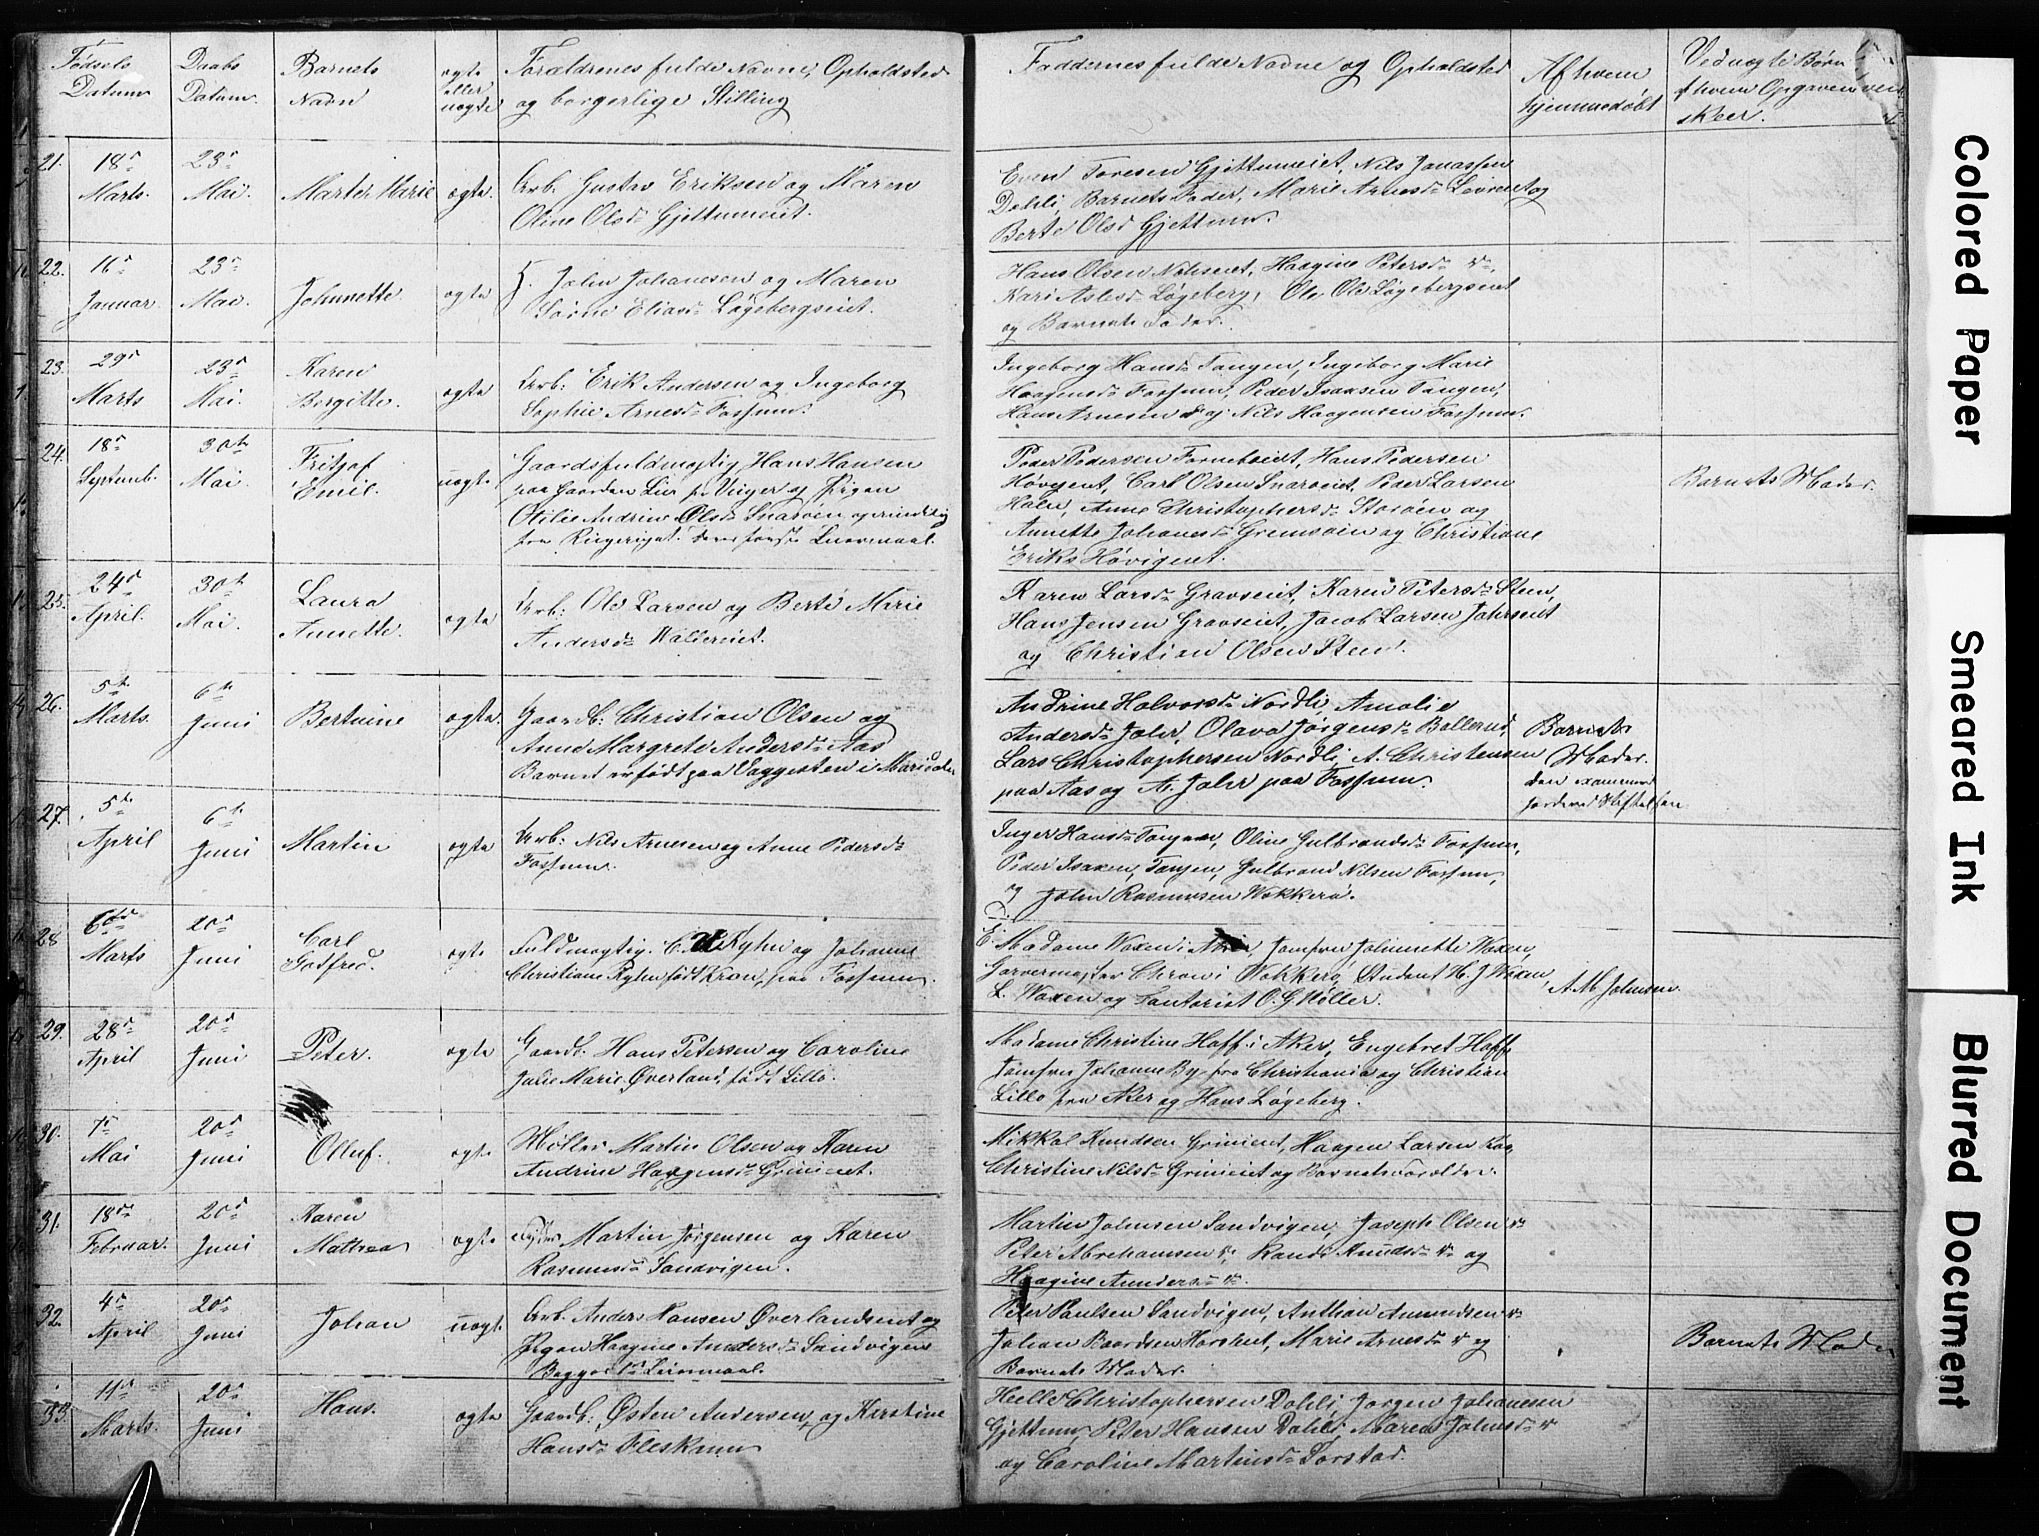 Fødsels Datum
Daabs Datum.
Barnets Navn
ægte eller uægte
Forældrenes fulde Navne, Opholdsted
og borgerlige Stilling
Faddernes fulde Navne og Opholdsted
Af hvem hjemmedøbt
Ved uægte Børn
af hvem Opgaven
skeer.
21.
18de Marts.
23de Mai.
Marte Marie
ægte.
Arb. Gustav Eriksen og Maren
Oline Olsd. Gjettumeiet.
Even Toresen Gjettumeiet, Nils Jonassen
Dæhli, Barnets Fader, Marie Arnesd. Løvenet og
Berte Olsd. Gjettum.
22.
16de Januar
23de Mai.
Johnnette
ægte
John Johanesen og Maren
Sørine Eliasd. Løgebergseiet.
Hans Olsen Næseiet, Haagine Petersd.
Kari Aslesd. Løgeberg, Ole Ols Løgebergseiet
og Barnets Fader.
23.
29de Marts
23de Mai.
Karen Birgitte.
ægte
Arb: Erik Andersen og Ingeborg
Sophie Arnesd. Fossum.
Ingeborg Hansd. Tangen, Ingeborg Marie
Haagensd. Fossum, Peder Isaksen Tangen,
Hans Arnesen og Nils Haagensen Fossum.
24.
18de Septemb.
30te Mai.
Fritjof Emil.
uægte.
Gaardsfuldmægtig Hans Hansen
paa Gaarden Lier pr Vinger og Pigen
Otilie Andrine Olsd. Snarøen oprindelig
fra Ringeriget. deres første Leiermaal.
Peder Pedersen Forneboeiet, Hans Pedersen
Høvigeiet, Carl Olsen Snarøeiet, Peder Larsen
Holm, Anne Christophersd. Storøen og
Annette Johanesd. Gremsøen og Christiane
Eriks Høvigeiet.
Barnets Moder.
25.
24de April.
30te Mai.
Laura Annette.
ægte
Arb: Ole Larsen og Berte Marie
Andersd. Wøllereiet.
Karen Larsd. Gravseiet, Karen Petersd. Steen,
Hans Jensen Gravseiet, Jacob Larsen Jahrseiet
og Christian Olsen Steen.
26.
5te Marts.
6te Juni
Bertine
ægte.
Gaardb: Christian Olsen og
Anne Margrete Andersd. Aas
Barnet er født paa Vaggesten i Maridalen
Andrine Halvorsd. Nordli, Amalie
Andersd. Jahr, Olava Jørgensd. Ballerud,
Lars Christophersen Nordli, A. Christensen
paa Aas og A. Jahr paa Fossum.
Barnets Moder.
den examinerede
Jordemoder
27.
5te April
6te Juni
Martin
ægte
Arb: Nils Arnesen og Anne Pedersd.
Fossum.
Inger Hansd. Tangen, Oline Gulbrandsd. Fossum,
Peder Isaksen, Tangen, Gulbrand Nilsen Fossum,
og John Rasmusen Wækkerø.
28
6te Marts
20de Juni
Carl Gotfred.
ægte
Fuldmægtig. C. Kyhn og Johanne
Christiane Kyhn født Kron, paa Fossum.
Madame Waxen i Aker, Jomfru Johnnette Waxen,
Garvermester Chron i Wækkerø, Student H. J. Waxen,
L. Waxen og O. G. Møller.
A. M. Johnsen.
29.
28de April
20de Juni
Peter.
ægte
Gaardb. Hans Petersen og Caroline
Julie Marie Øverland, født Lillo.
Madame Christine Hoff i Aker, Engebret Hoff,
Jomfru Johanne By fra Christiania og Christian
Lillo fra Aker og Hans Løgeberg.
30.
7de Mai
20de Juni
Olluf.
ægte
Møller Martin Olsen og Karen
Andrine Haagensd. Grinieiet.
Mikkal Knudsen Grinieiet, Haagen Larsen
Christine Nilsd. Grinieiet og Barnets Forældre.
31.
18de Februar.
20de Juni
Karen Mathea
ægte
Martin Jørgensen og Karen
Rasmusd. Sandvigen.
Martin Johnsen Sandvigen, Joseph Olsen
Peter Abrahamsen, Randi Knudsd. og
Haagine Aundersd.
32.
4de April
20de Juni
Johan
uægte.
Arb. Anders Hansen Øverlandseiet og
Pigen Haagine Andersd. Sandvigen
Begges 1ste Leiermaal.
Peter Paulsen Sandvigen, Anthon Amundsen
Johan Baardsen Horsteiet, Marie Arnesd. og
Barnets Moder.
Barnets Moder
33.
11te Marts.
20de Juni
Hans.
ægte
Gaardb. Østen Andersen og Kirstine
Hansd. Fleskum
Helle Christophersen Dæhli, Jørgen Johanesen
Gjettum, Peter Hansen Dæhli, Maren Johnsd.
og Caroline Martinsd. Forstad.
Colored Paper
Smeared Ink
Blurred Document